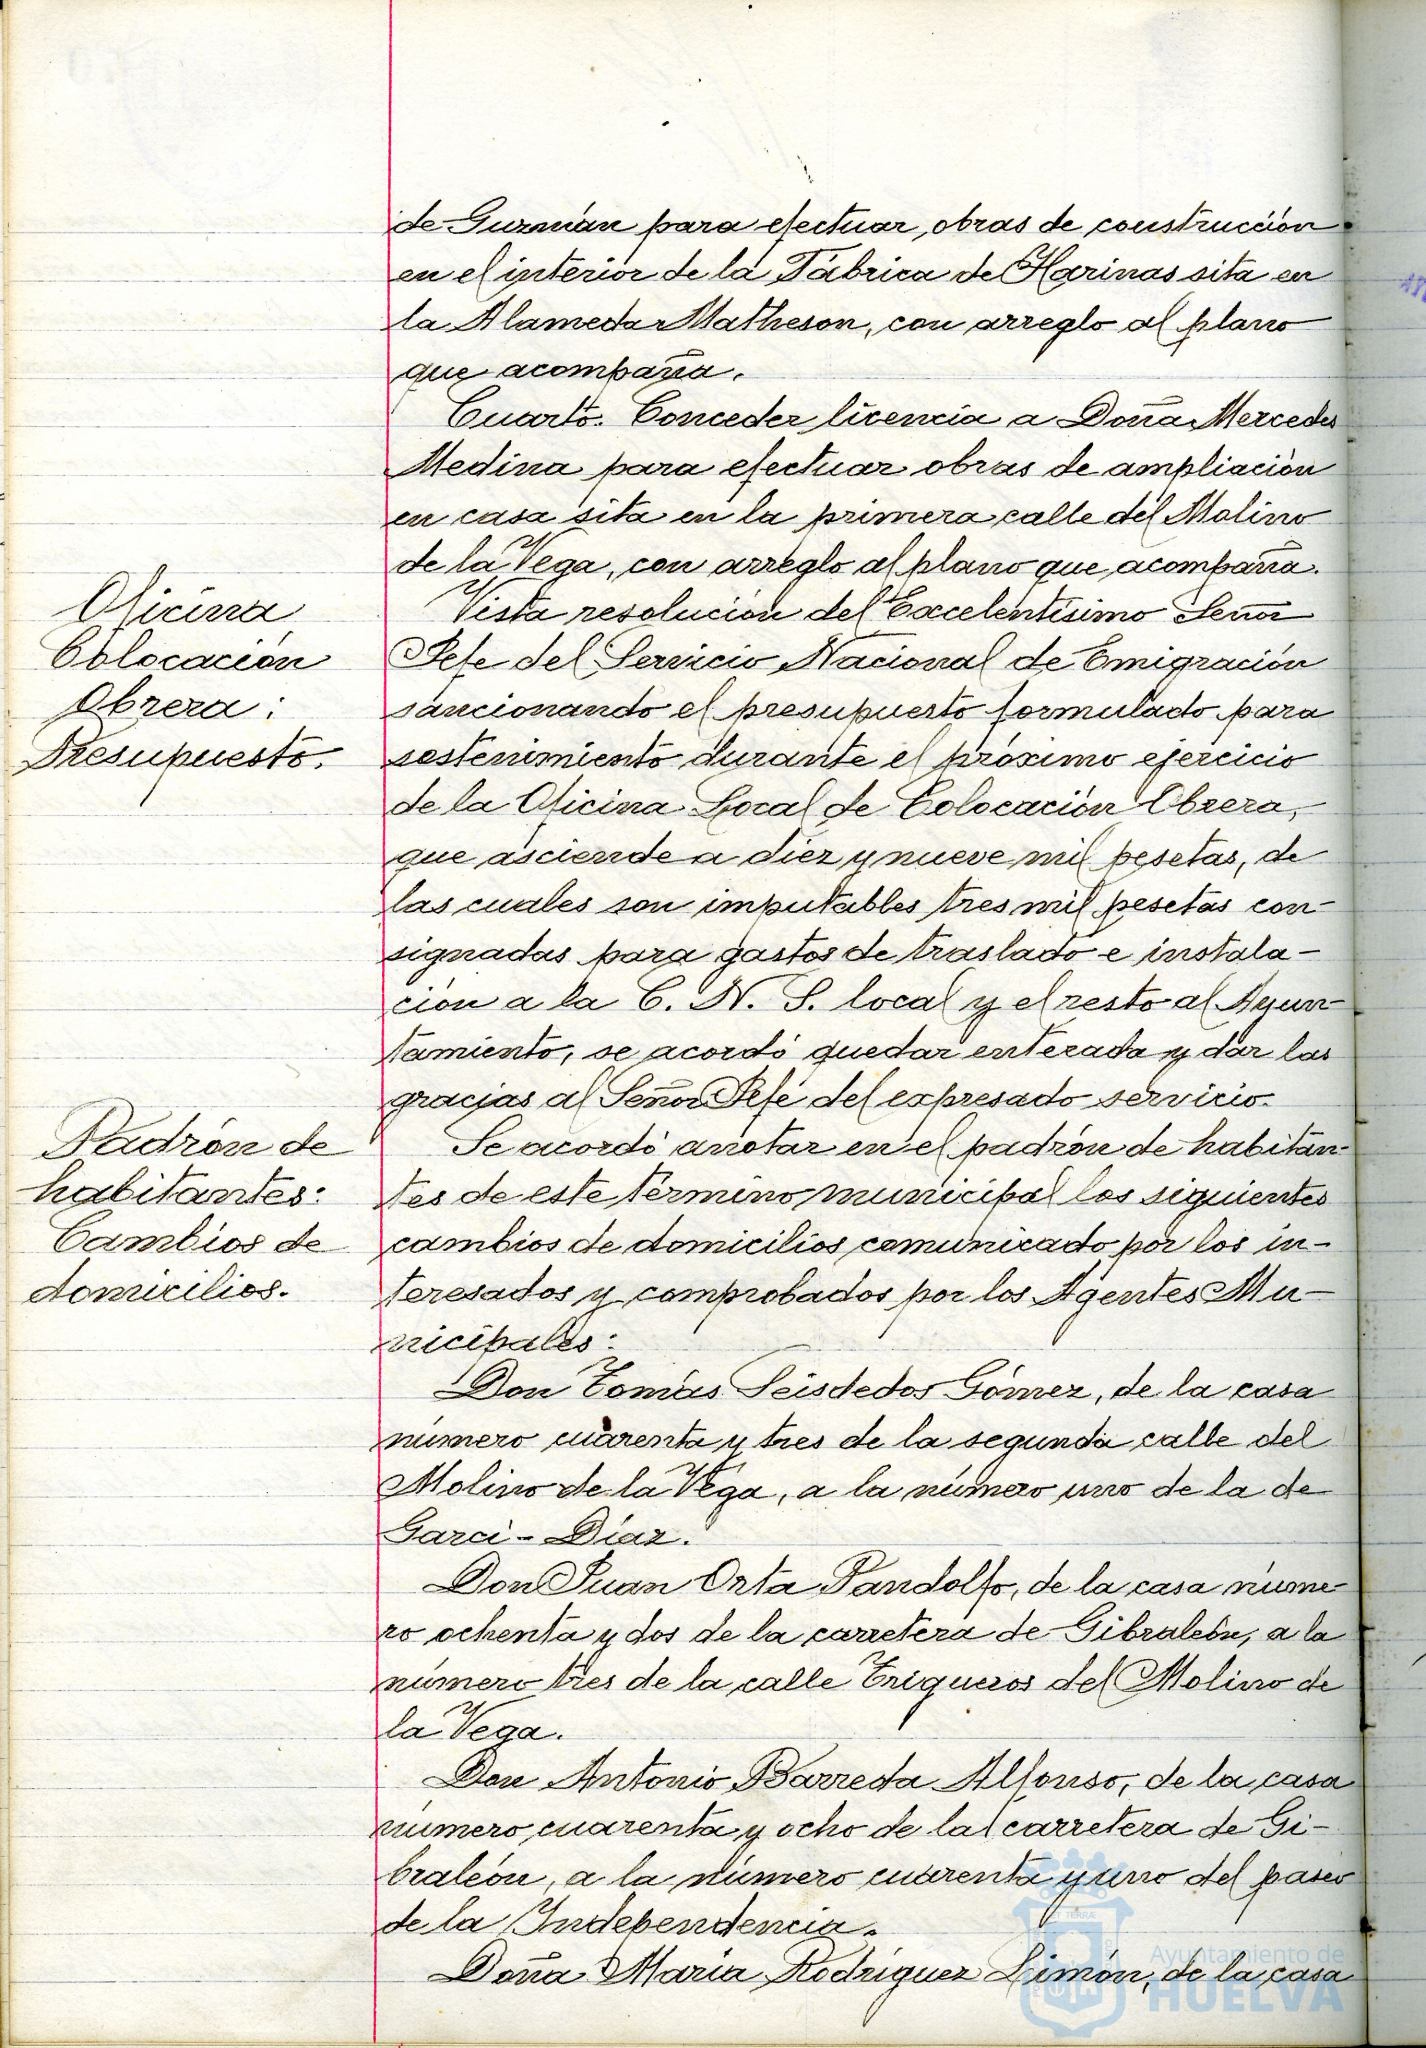 de Guzmán para efectuar obras de construcción
en el interior de la Fábrica de Harinas sita en
la Alameda Matheson, con arreglo al plano
que acompaña.
Cuarto. Conceder licencia a Doña Mercedes
Medina para efectuar obras de ampliación
en casa sita en la primera calle del Molino
de la Vega, con arreglo al plano que acompaña.
Oficina
Colocación
Obrera:
Presupuesto.
Vista resolución del Excelentísimo Señor
Jefe del Servicio Nacional de Emigración
sancionando el presupuesto formulado para
sostenimiento durante el próximo ejercicio
de la Oficina Local de Colocación Obrera,
que asciende a diez y nueve mil pesetas, de
las cuales son imputables tres mil pesetas con-
signadas para gastos de traslado e instala-
ción a la C. N. S. local y el resto al Ayun-
tamiento, se acordó quedar enterada y dar las
gracias al Señor Jefe del expresado servicio.
Padrón de
habitantes:
Cambios de
domicilios.
Se acordó anotar en el padrón de habitan-
tes de este término municipal los siguientes
cambios de domicilios comunicado por los in-
teresados y comprobados por los Agentes Mu-
nicipales:
Don Tomás Seisdedos Gómez, de la casa
número cuarenta y tres de la segunda calle del
Molino de la Vega, a la número uno de la de
Garci-Díaz.
Don Juan Orta Pandolfo, de la casa núme-
ro ochenta y dos de la carretera de Gibraleón, a la
número tres de la calle Trigueros del Molino de
la Vega.
Don Antonio Barreda Alfonso, de la casa
número cuarenta y ocho de la carretera de Gi-
braleón, a la número cuarenta y uno del paseo
de la Independencia.
Doña María Rodríguez Limón, de la casa
Ayuntamiento de
HUELVA